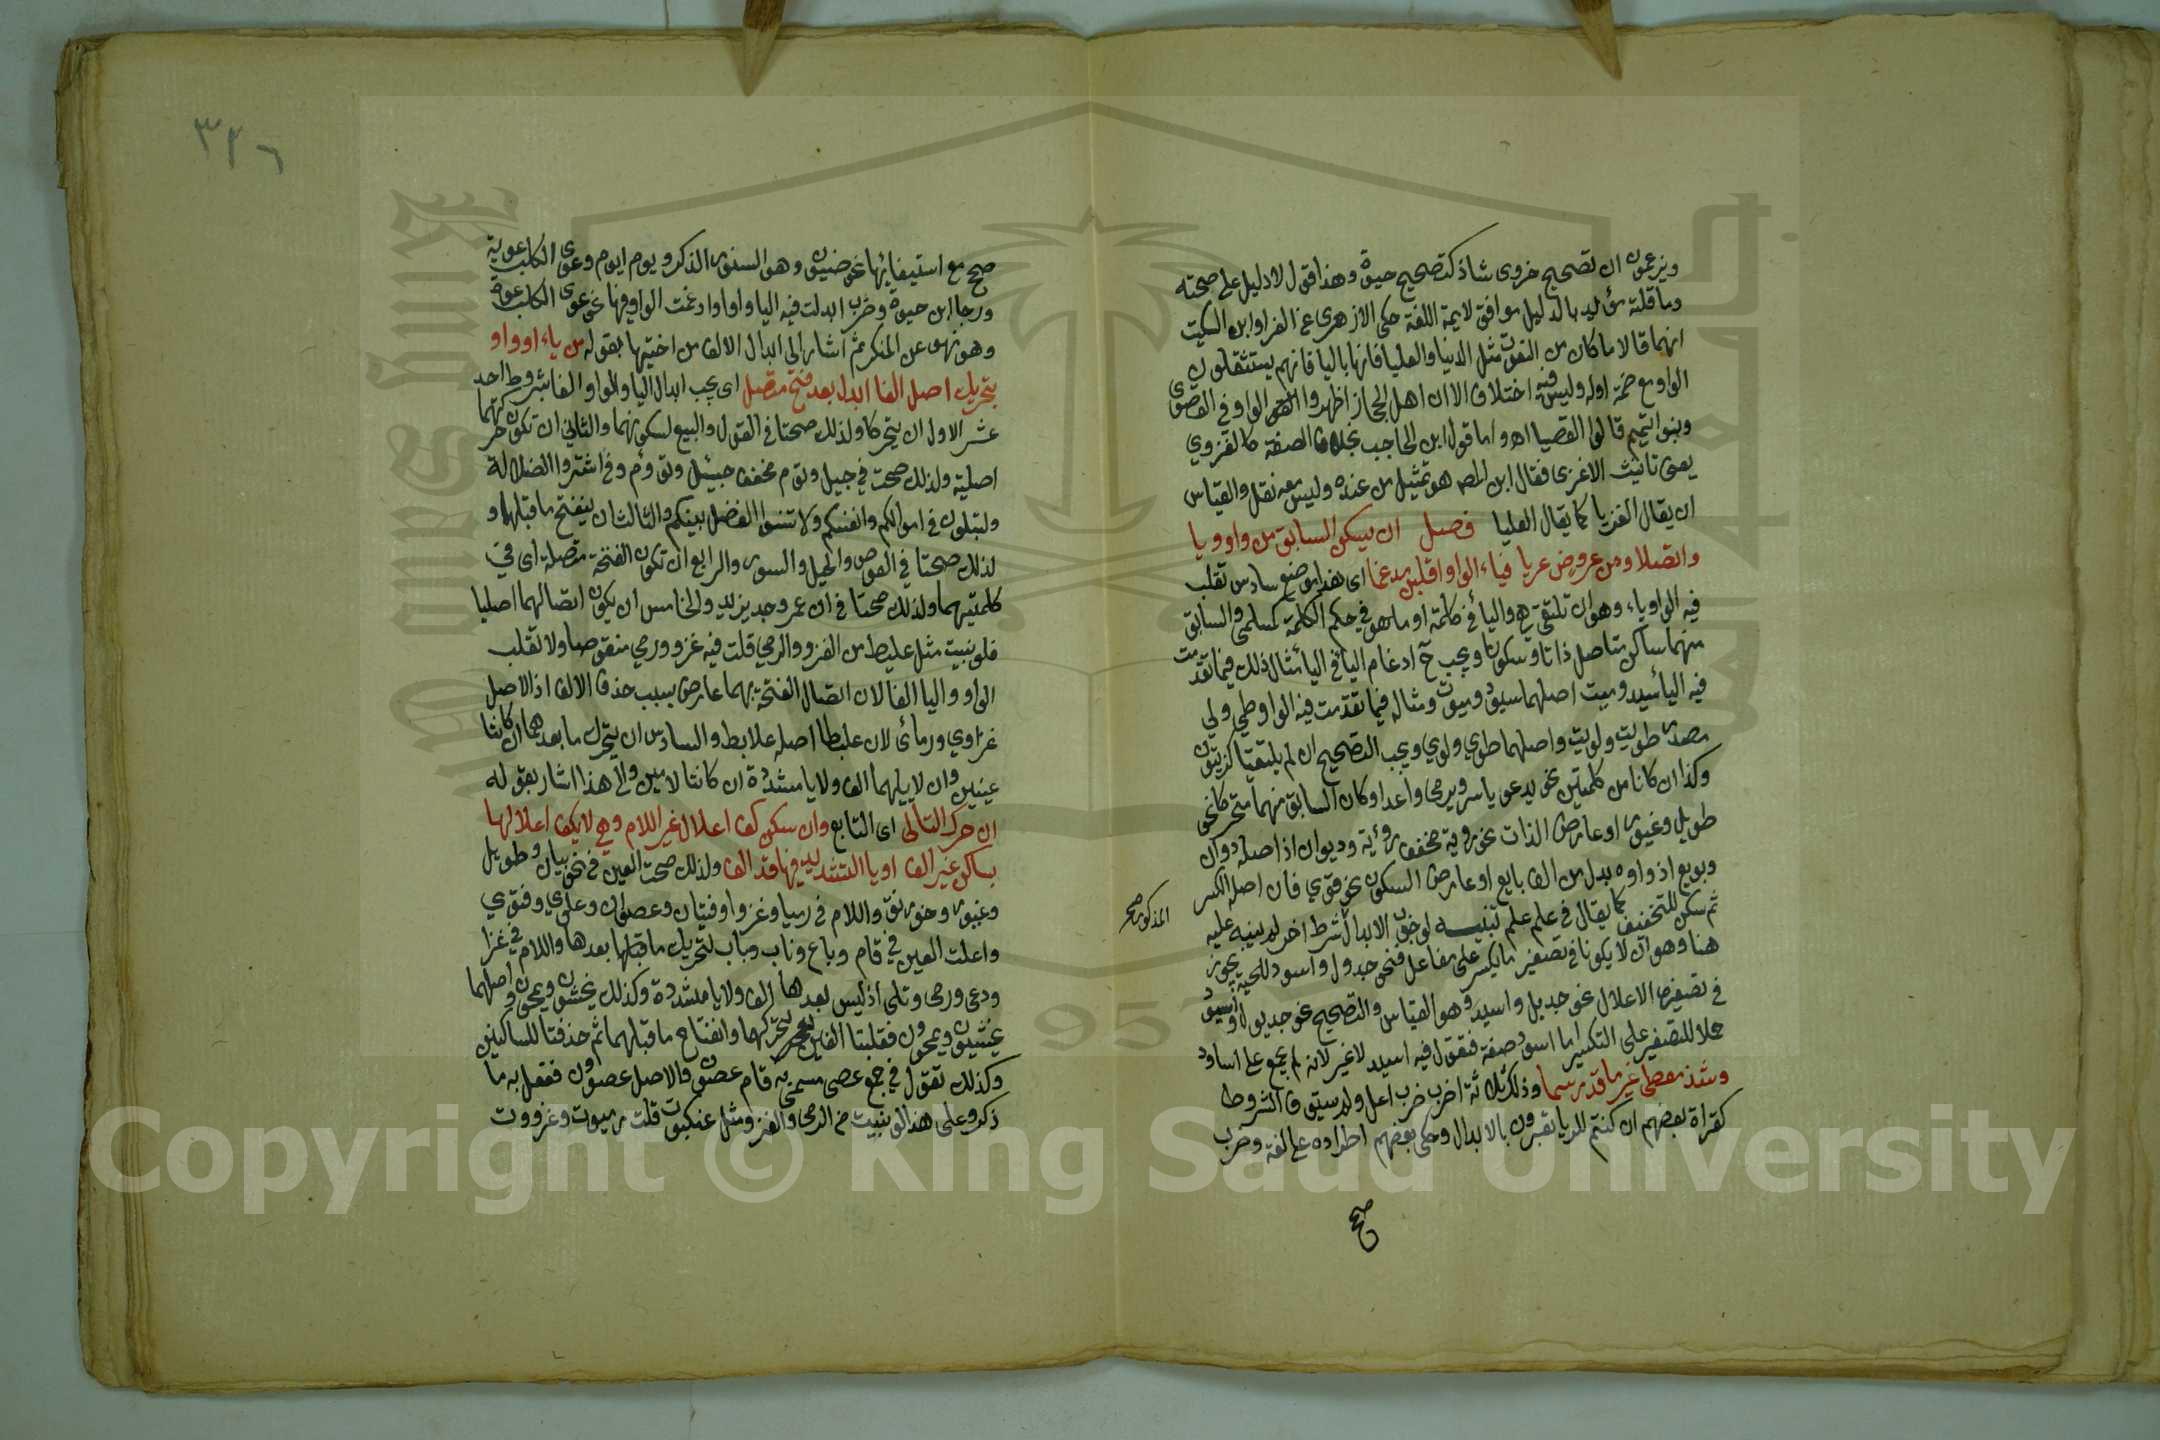 ويزعمون ان تصحيح حزوى شاذ كتصحيح حيوة وهذا قول لا دليل على صحته
وما قلته مؤيد بالدليل موافق لايمة اللغة حكى الازهرى عن الفرا وابن السكيت
انهما قالا ما كان من النعوت مثل الدنيا والعليا فانها باليا فانهم يستثقلون
الواو مع ضمة اوله وليس فيه اختلاف الا ان اهل الحجاز اظهروا الواو في القصوى
وبنو تميم قالوا القصيا اهو اما قول ابن الحاجب بخلاف الصفة كالغزوي
يعنى تانيث الاغزى فقال ابن المص هو تمثيل من عنده وليس معه نقل والقياس
ان يقال الغزيا كما يقال العليا فصل ان يسكن السابق من واو ويا
واتصلا ومن عروض عريا فياء الواو اقلبن مدغما اى هذا موضع سادس تقلب
فيه الواو ياء وهو ان تلتقي هي واليا في كلمة او ما هو في حكم الكلمة كمسلمي والسابق
منهما ساكن متاصل ذاتا وسكونا ويجب ح ادغام اليا في اليا مثال ذلك فيما تقدمت
فيه اليا سيد وميت اصلهما سيود وميوت ومثاله فيما تقدمت فيه الواو طي ولي
مصدر طويت ولويت واصلهما طوي ولوي ويجب التصحيح ان لم يلتقيا كزيتون
وكذا ان كانا من كلمتين نحو يدعو ياسر ويرمى واعدا وكان السابق منهما متحركا نحو
طويل وغيور او عارض الذات نحو روية مخفف رؤية وديوان اذ اصله دوان
وبويع اذ واوه بدل من الف بايع او عارض السكون نحو قوي فان اصله الكسر
ثم سكن للتخفيف كما يقال في علم علم تنبيه لوجوب الابدال شرط اخر لم ينبه عليه
المذكور صح
هنا وهو ان لا يكونا في تصغير ما يكسر على مفاعل فنحو جدول واسود للحية يجوز
في تصغيره الاعلال نحو جديل واسيد وهو القياس والتصحيح نحو جديول واسيود
حملا للتصغير على التكسير اما اسود صفة فتقول فيه اسيد لا غير لانه لم يجمع على اساود
وشذ معطى غير ما قد رسما وذلك ثلاثة اضرب ضرب اعل ولم يستوف الشروط
كقراة بعضهم ان كنتم للريا تعبرون بالابدال وحكى بعضهم اطراده على لغة وضرب
صح
٣٢٦
صح مع استيفائها نحو ضيون وهو السنور الذكر ويوم ايوم وعوى الكلب عوية
ورجا ابن حيوة وضرب ابدلت فيه اليا واوا وادغمت الواو فيها نحو عوى الكلب عوة
وهو نهو عن المنكر ثم اشار الى ابدال الالف من اختيها بقوله من ياء او واو
بتحريك اصل الفا ابدل بعد فتح متصل اى يجب ابدال اليا والواو الفا بشروط احد
عشر الاول ان يتحركا ولذلك صحتا في القول والبيع لسكونهما والثاني ان تكون حركتهما
اصلية ولذلك صحت في جيل وتوم مخفف جيئل وتوءم وفي اشتروا الضلالة
ولتبلون في اموالكم وانفسكم ولا تنسوا الفضل بينكم والثالث ان ينفتح ما قبلهما و
لذلك صحتا في العوض والحيل والسور والرابع ان تكون الفتحة متصلة اى في
كلمتيهما ولذلك صحتا في ان عمر وجد يزيد والخامس ان يكون اتصالهما اصليا
فلو بنيت مثل عليط من الغزو والرمي قلت فيه غزو ورمي منقوصا ولا تقلب
الواو واليا الفا لان اتصال الفتحة بهما عارض بسبب حذف الالف اذ الاصل
غزاوي ورمائ لان علبطا اصله علابط والسادس ان يتحرك ما بعدهما ان كانتا
عينين وان لا يليهما الف ولا يا مشددة ان كانتا لامين والى هذا اشار بقوله
ان حرك التالى اى التابع وان سكن كف اعلال غير اللام وهي لا يكف اعلالها
بساكن غير الف او يا التشديد فيها قد الف ولذلك صحت العين في نحو بيان وطويل
وغيور وخورنق واللام في رميا وغزوا وفتيان وعصوان وعلوي وفتوي
واعلت العين في قام وباع وناب وباب لتحريك ما قبلها بعدها واللام في غزا
ودعى ورمى وتلى اذ ليس بعدها الف ولا يا مشددة وكذلك يخشون ويمحون واصلهما
يخشيون ويمحوون فقلبتا الفين لتحركهما وانفتاح ما قبلهما ثم حذفتا للساكنين
وكذلك تقول في جمع عصى مسمى به قام عصون والاصل عصوون ففعل به ما
ذكر وعلى هذا لو بنيت من الرمي والغزو مثل عنكبوت قلت رميوت وغزووت
Copyright © King Saud University
King Saud University
1957